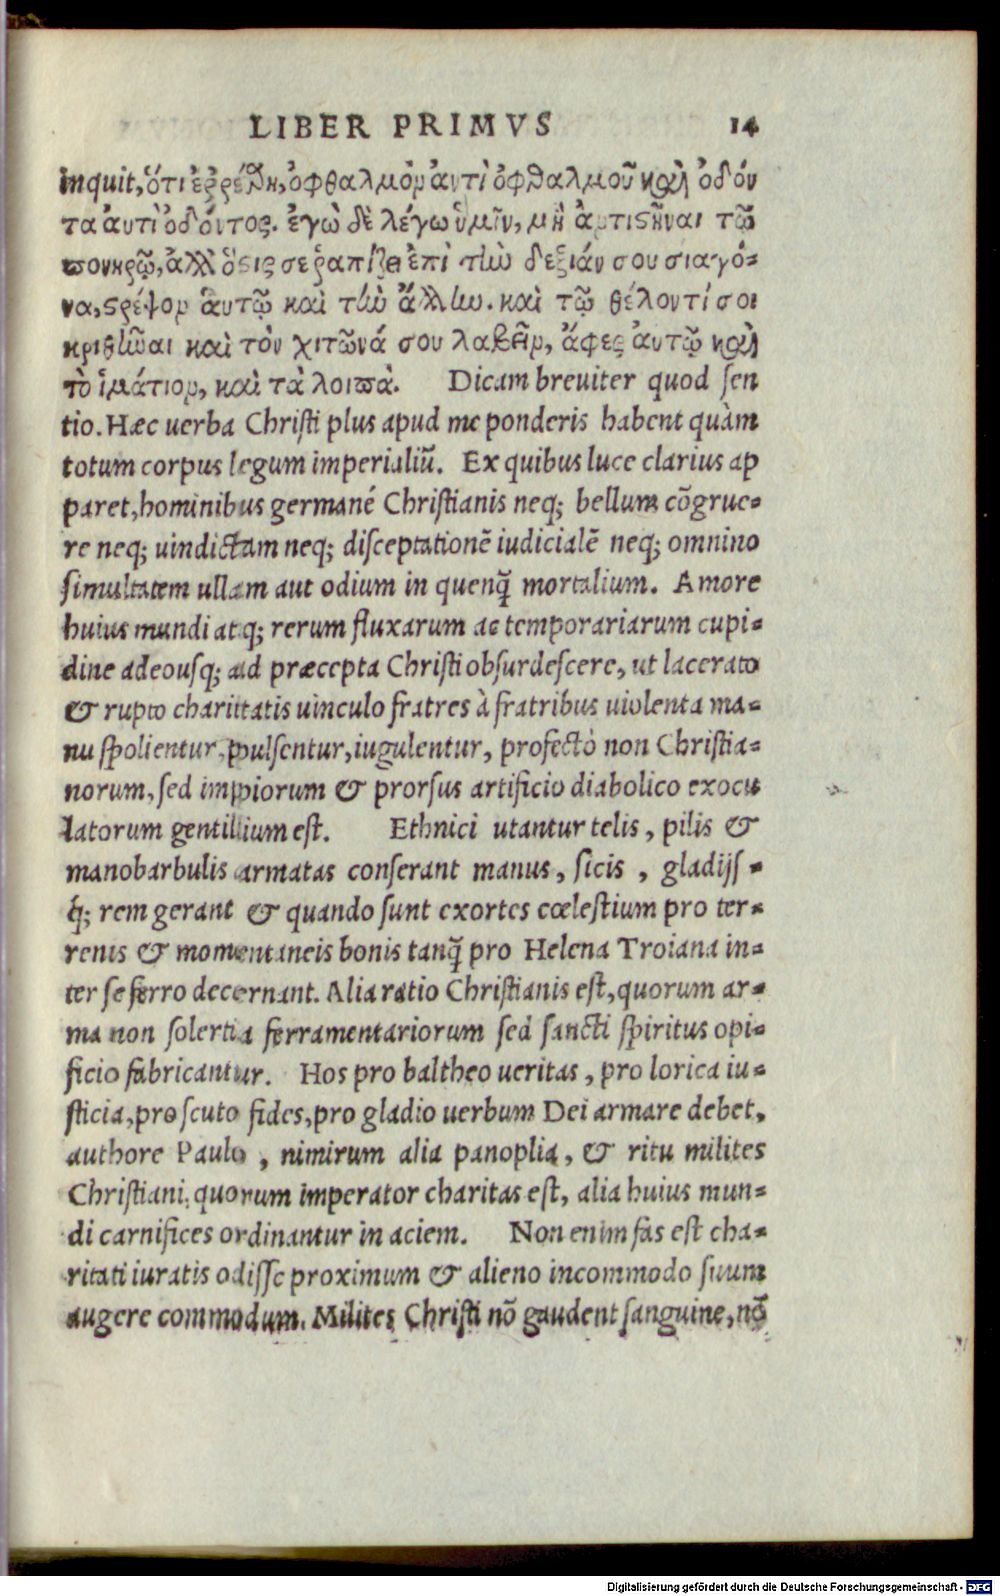 LIBER PRIMVS 14
inquit, ὅτι ἐῤῥέθη, ὀφθαλμὸν ἀντὶ ὀφθαλμοῦ καὶ ὀδόν
τα ἀντὶ ὀδόντος. ἐγὼ δὲ λέγω ὑμῖν, μὴ ἀντιςῆναι τῷ
πονηρῷ, ἀλλ᾽ ὅςις σε ῥαπίζει ἐπὶ τὴν δεξιάν σου σιαγό=
να, ςρέψον ἀυτῷ καὶ τὴν ἄλλην. καὶ τῷ θέλοντί σοι
κριθῆναι καὶ τὸν χιτῶνά σου λαβεῖν, ἄφες ἀυτῷ καὶ
τὸ ἱμάτιον, καὶ τὰ λοιπὰ. Dicam breuiter quod sen
tio. Hæc uerba Christi plus apud me ponderis habent quàm
totum corpus legum imperialiū. Ex quibus luce clarius ap
paret, hominibus germané Christianis neq; bellum cōgrue=
re neq; uindictam neq; disceptationē iudicialē neq; omnino
simultatem ullam aut odium in quenq̃ mortalium. Amore
huius mundi atq; rerum fluxarum ac temporariarum cupi=
dine adeousq; ad præcepta Christi obsurdescere, ut lacerato
& rupto charittatis uinculo fratres à fratribus uiolenta ma=
nu spolientur, pulsentur, iugulentur, profectò non Christia=
norum, sed impiorum & prorsus artificio diabolico exocu
latorum gentilium est. Ethnici utantur telis, pilis &
manobarbulis armatas conserant manus, sicis, gladijs=
q̃; rem gerant & quando sunt exortes cœlestium pro ter=
renis & momentaneis bonis tanq̃ pro Helena Troiana in=
ter se ferro decernant. Alia ratio Christianis est, quorum ar=
ma non solertia ferramentariorum sed sancti spiritus opi=
ficio fabricantur. Hos pro baltheo ueritas, pro lorica iu=
sticia, pro scuto fides, pro gladio uerbum Dei armare debet,
authore Paulo, nimirum alia panoplia, & ritu milites
Christiani, quorum imperator charitas est, alia huius mun=
di carnifices ordinantur in aciem. Non enim fas est cha=
ritati iuratis odisse proximum & alieno incommodo suum
augere commodum. Milites Christi nō gaudent sanguine, nō
Digitalisierung gefördert durch die Deutsche Forschungsgemeinschaft - DFG